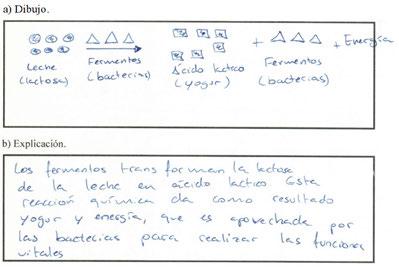 a) Dibujo.
+ + Energía
Leche Fermentos Ácido láctico Fermentos
(lactosa) (bacterias) (yogur) (bacterias)
b) Explicación.
Los fermentos transforman la lactosa
de la leche en ácido láctico Esta
reacción química da como resultado
yogur y energía, que es aprovechada por
las bacterias para realizar las funciones
vitales